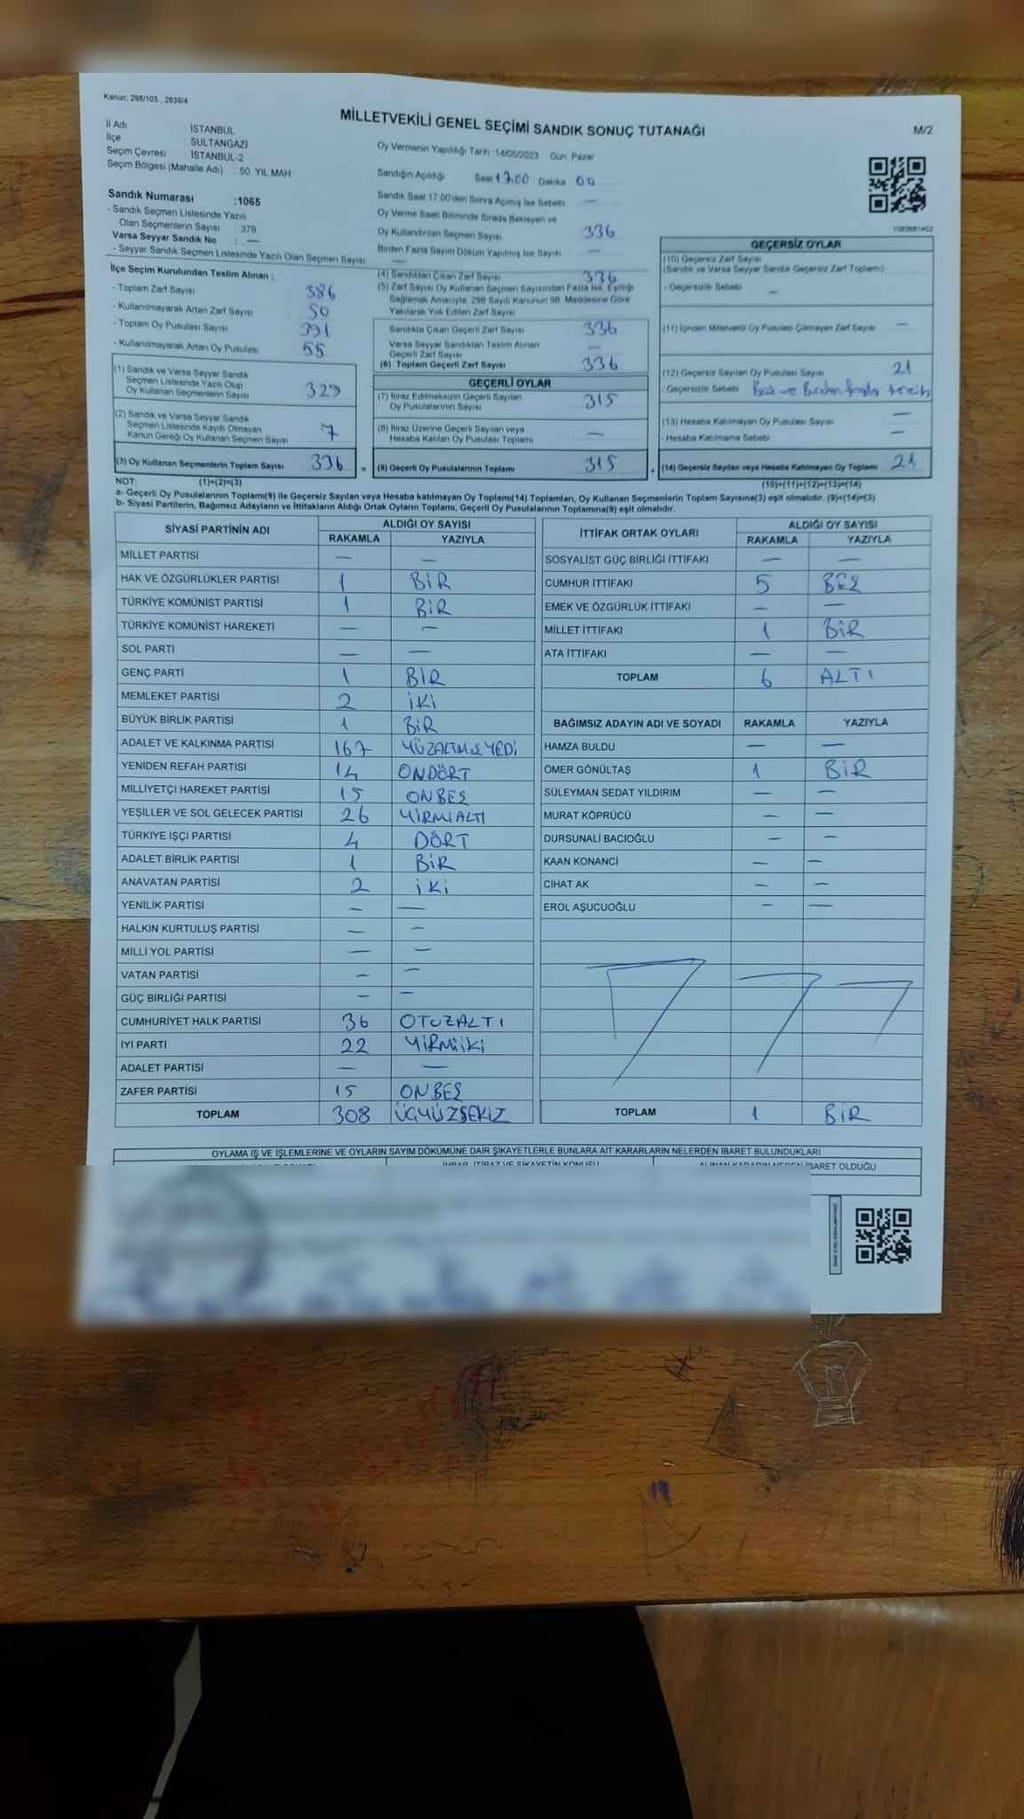 Kanun: 298/105 , 2839/4
MİLLETVEKİLİ GENEL SEÇİMİ SANDIK SONUÇ TUTANAĞI
M/2
İl Adı : İSTANBUL
İlçe : SULTANGAZİ
Seçim Çevresi : İSTANBUL-2
Seçim Bölgesi (Mahalle Adı) : 50. YIL MAH
Sandık Numarası :1065
- Sandık Seçmen Listesinde Yazılı
Olan Seçmenlerin Sayısı : 379
Varsa Seyyar Sandık No : —
- Seyyar Sandık Seçmen Listesinde Yazılı Olan Seçmen Sayısı —
İlçe Seçim Kurulundan Teslim Alınan :
- Toplam Zarf Sayısı 386
- Kullanılmayarak Artan Zarf Sayısı 50
- Toplam Oy Pusulası Sayısı 391
- Kullanılmayarak Artan Oy Pusulası 55
(1) Sandık ve Varsa Seyyar Sandık
Seçmen Listesinde Yazılı Olup
Oy Kullanan Seçmenlerin Sayısı 329
(2) Sandık ve Varsa Seyyar Sandık
Seçmen Listesinde Kayıtlı Olmayan
Kanun Gereği Oy Kullanan Seçmen Sayısı 7
(3) Oy Kullanan Seçmenlerin Toplam Sayısı 336
Oy Vermenin Yapıldığı Tarih :14/05/2023 Gün: Pazar
Sandığın Açıldığı Saat 17.00 Dakika 00
Sandık Saat 17:00'den Sonra Açılmış İse Sebebi —
Oy Verme Saati Bitiminde Sırada Bekleyen ve
Oy Kullandırılan Seçmen Sayısı 336
Birden Fazla Sayım Döküm Yapılmış İse Sayısı —
(4) Sandıktan Çıkan Zarf Sayısı 336
(5) Zarf Sayısı Oy Kullanan Seçmen Sayısından Fazla İse, Eşitliği
Sağlamak Amacıyla, 298 Sayılı Kanunun 98. Maddesine Göre
Yakılarak Yok Edilen Zarf Sayısı —
Sandıkta Çıkan Geçerli Zarf Sayısı 336
Varsa Seyyar Sandıktan Teslim Alınan
Geçerli Zarf Sayısı —
(6) Toplam Geçerli Zarf Sayısı 336
GEÇERLİ OYLAR
(7) İtiraz Edilmeksizin Geçerli Sayılan
Oy Pusulalarının Sayısı 315
(8) İtiraz Üzerine Geçerli Sayılan veya
Hesaba Katılan Oy Pusulası Toplamı —
= (9) Geçerli Oy Pusulalarının Toplamı 315
GEÇERSİZ OYLAR
(10) Geçersiz Zarf Sayısı
(Sandık ve Varsa Seyyar Sandık Geçersiz Zarf Toplamı)
- Geçersizlik Sebebi —
(11) İçinden Milletvekili Oy Pusulası Çıkmayan Zarf Sayısı —
(12) Geçersiz Sayılan Oy Pusulası Sayısı 21
- Geçersizlik Sebebi Boş ve Birden fazla tercih
(13) Hesaba Katılmayan Oy Pusulası Sayısı —
- Hesaba Katılmama Sebebi —
+ (14) Geçersiz Sayılan veya Hesaba Katılmayan Oy Toplamı 21
NOT: (1)+(2)=(3) (10)+(11)+(12)+(13)=(14)
a- Geçerli Oy Pusulalarının Toplamı(9) ile Geçersiz Sayılan veya Hesaba katılmayan Oy Toplamı(14) Toplamları, Oy Kullanan Seçmenlerin Toplam Sayısına(3) eşit olmalıdır. (9)+(14)=(3)
b- Siyasi Partilerin, Bağımsız Adayların ve İttifakların Aldığı Ortak Oyların Toplamı, Geçerli Oy Pusulalarının Toplamına(9) eşit olmalıdır.
SİYASİ PARTİNİN ADI ALDIĞI OY SAYISI
RAKAMLA YAZIYLA
MİLLET PARTİSİ — —
HAK VE ÖZGÜRLÜKLER PARTİSİ 1 BİR
TÜRKİYE KOMÜNİST PARTİSİ 1 BİR
TÜRKİYE KOMÜNİST HAREKETİ — —
SOL PARTİ — —
GENÇ PARTİ 1 BİR
MEMLEKET PARTİSİ 2 İKİ
BÜYÜK BİRLİK PARTİSİ 1 BİR
ADALET VE KALKINMA PARTİSİ 167 YÜZALTMIŞYEDİ
YENİDEN REFAH PARTİSİ 14 ONDÖRT
MİLLİYETÇİ HAREKET PARTİSİ 15 ONBEŞ
YEŞİLLER VE SOL GELECEK PARTİSİ 26 YİRMİALTI
TÜRKİYE İŞÇİ PARTİSİ 4 DÖRT
ADALET BİRLİK PARTİSİ 1 BİR
ANAVATAN PARTİSİ 2 İKİ
YENİLİK PARTİSİ — —
HALKIN KURTULUŞ PARTİSİ — —
MİLLİ YOL PARTİSİ — —
VATAN PARTİSİ — —
GÜÇ BİRLİĞİ PARTİSİ — —
CUMHURİYET HALK PARTİSİ 36 OTUZALTI
İYİ PARTİ 22 YİRMİİKİ
ADALET PARTİSİ — —
ZAFER PARTİSİ 15 ONBEŞ
TOPLAM 308 ÜÇYÜZSEKİZ
İTTİFAK ORTAK OYLARI ALDIĞI OY SAYISI
RAKAMLA YAZIYLA
SOSYALİST GÜÇ BİRLİĞİ İTTİFAKI — —
CUMHUR İTTİFAKI 5 BEŞ
EMEK VE ÖZGÜRLÜK İTTİFAKI — —
MİLLET İTTİFAKI 1 BİR
ATA İTTİFAKI — —
TOPLAM 6 ALTI
BAĞIMSIZ ADAYIN ADI VE SOYADI RAKAMLA YAZIYLA
HAMZA BULDU — —
ÖMER GÖNÜLTAŞ 1 BİR
SÜLEYMAN SEDAT YILDIRIM — —
MURAT KÖPRÜCÜ — —
DURSUNALİ BACIOĞLU — —
KAAN KONANCİ — —
CİHAT AK — —
EROL AŞUCUOĞLU — —
TOPLAM 1 BİR
OYLAMA İŞ VE İŞLEMLERİNE VE OYLARIN SAYIM DÖKÜMÜNE DAİR ŞİKAYETLERLE BUNLARA AİT KARARLARIN NELERDEN İBARET BULUNDUKLARI
İHBAR, İTİRAZ VE ŞİKAYETİN KONUSU ALINAN KARARIN NEDEN İBARET OLDUĞU